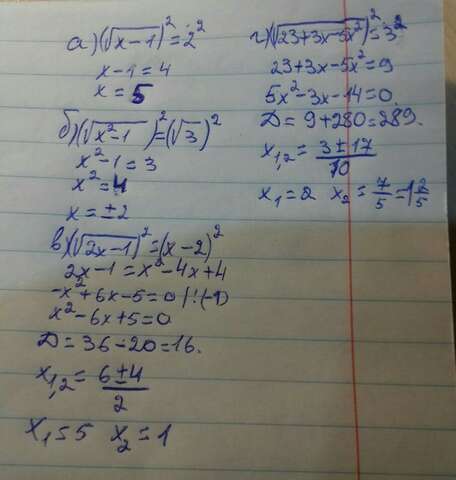 а) (√x-1)² = 2²
x-1 = 4
x = 5
б) (√x²-1)² = (√3)²
x²-1 = 3
x² = 4
x = ±2
в) (√2x-1)² = (x-2)²
2x-1 = x²-4x+4
-x²+6x-5=0 | :(-1)
x²-6x+5=0
D = 36-20=16.
x₁,₂ = 6±4/2
x₁=5 x₂=1
г) (√23+3x-5x²)² = 3²
23+3x-5x²=9
5x²-3x-14=0.
D = 9+280=289.
x₁,₂ = 3±17/10
x₁=2 x₂=7/5=1 2/5